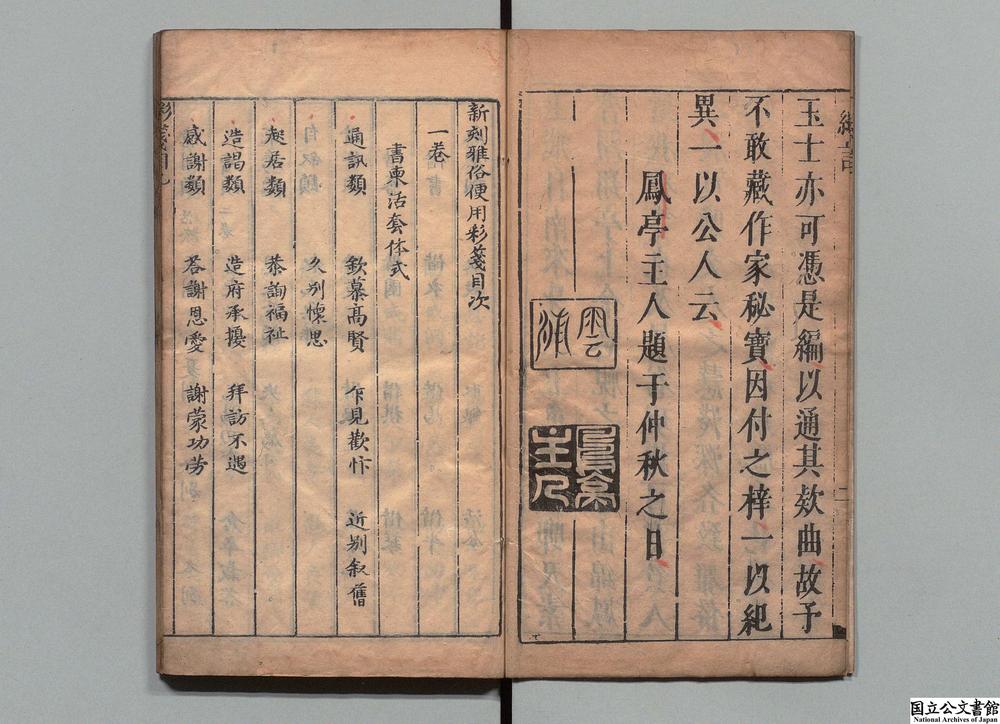 玉士亦可憑是編以通其欸曲故予
不敢藏作家秘寶因付之梓一以紀
異一以公人云
鳳亭主人題于仲秋之日
雲浦
鳳亭主人
新刻雅俗便用彩箋目次
一卷
書柬活套体式
通訊類 欽慕高賢 乍見歡忭 近别叙舊
久别懷思
起居類 恭詢福祉
造謁類 造府承擾 拜訪不遇
感謝類 荅謝恩愛 謝蒙功劳
国立公文書館
National Archives of Japan